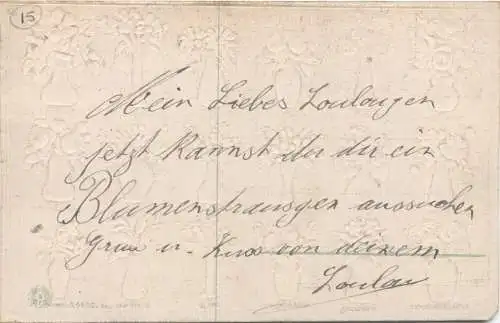 15
Mein Liebes Loulougen
jetzt kannst du dir ein
Blumenstrausgen aussuchen
Gruss u. Kuss von deinem
Loulou